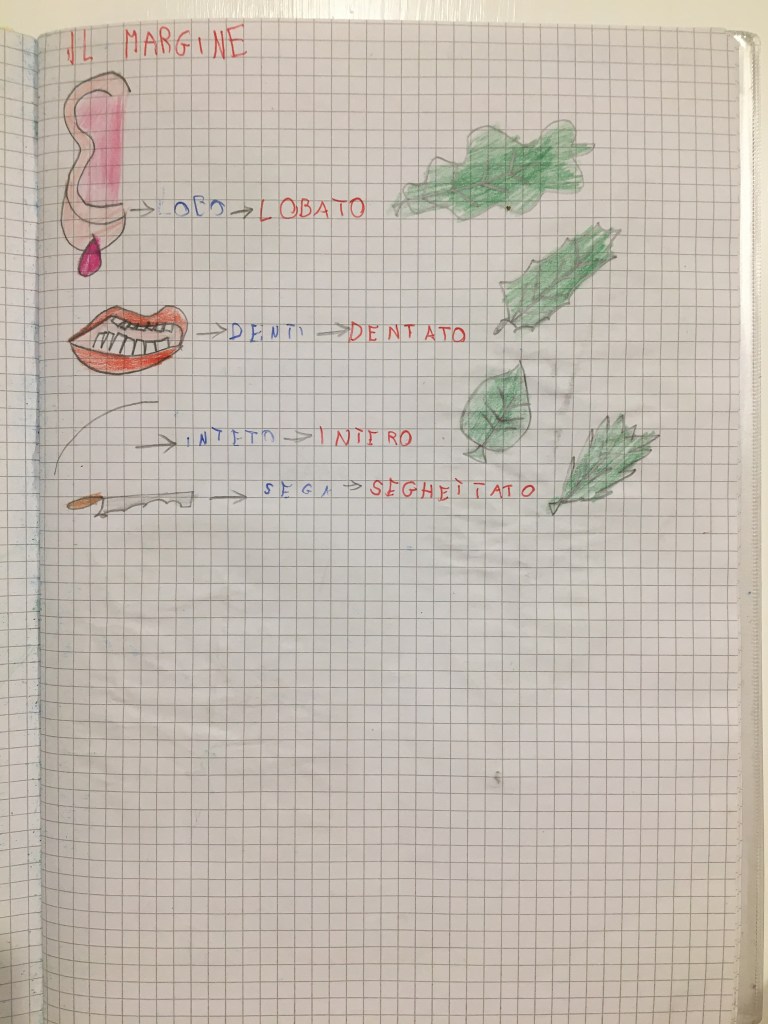 IL MARGINE
→ LOBO → LOBATO
→ DENTI → DENTATO
→ INTETO → INTERO
→ SEGA → SEGHETTATO